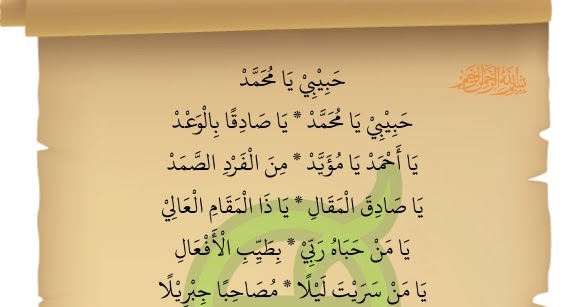 حَبِيْبِيْ يَا مُحَمَّدْ
بسم الله الرحمن الرحيم
حَبِيْبِيْ يَا مُحَمَّدْ * يَا صَادِقًا بِالْوَعْدْ
يَا أَحْمَدْ يَا مُؤَيَّدْ * مِنَ الْفَرْدِ الصَّمَدْ
يَا صَادِقَ الْمَقَالِ * يَا ذَا الْمَقَامِ الْعَالِيْ
يَا مَنْ حَبَاهُ رَبِّيْ * بِطَيِّبِ الْأَفْعَالِ
يَا مَنْ سَرَيْتَ لَيْلًا * مُصَاحِبًا جِبْرِيْلًا